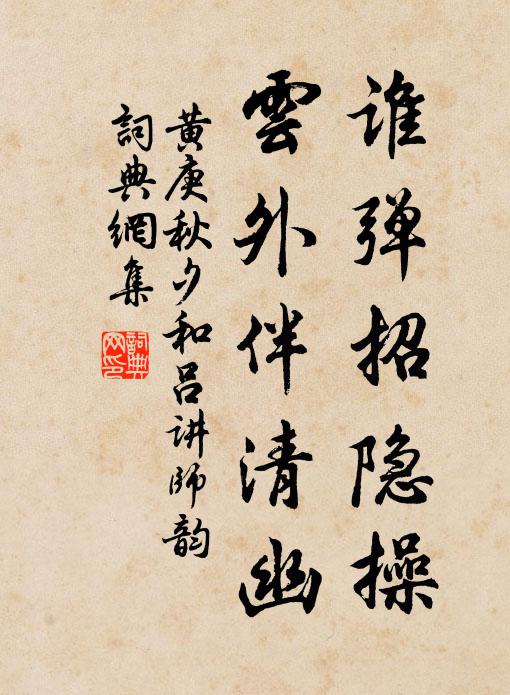 谁弹招隐操
雲外伴清幽
黄庚秋夕和吕讲师韵
詞典網集
詞典网印